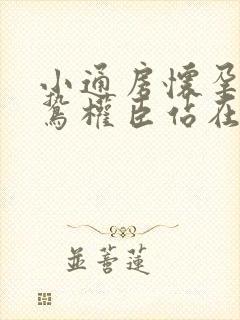 小通房懷孕
鷙權臣佔在
並蒂蓮